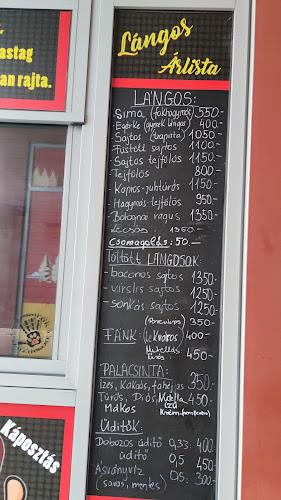 astag
an rajta.
Lángos
Árlista
LÁNGOS:
- Sima (fokhagymás) 550.-
- Egérke (gyerek lángos) 400-
- Sajtos (trapista) 1050.-
- Füstölt sajtos 1100-
- Sajtos tejfölös 1150-
- Tejfölös 800.-
- Kapros-juhtúrós 1150-
- Hagymás-tejfölös 950-
- Bolognai ragus 1350-
- Lecsós 1350.-
Csomagolás: 50.-
TÖLTÖTT LÁNGOSOK:
- baconos sajtos 1350-
- virslis sajtos 1250-
- sonkás sajtos 1250-
350-
FÁNK: (lekváros) 400-
Nutellás 450-
PALACSINTA:
ízes, kakaós, fahéjas 350.-
Túrós, Diós, Nutella
Mákos 450-
ÜDÍTŐK:
Dobozos üdítő 0,33: 400-
üdítő 0,5 450-
Ásványvíz 0,5: 300-
(savas, mentes)
Káposztás